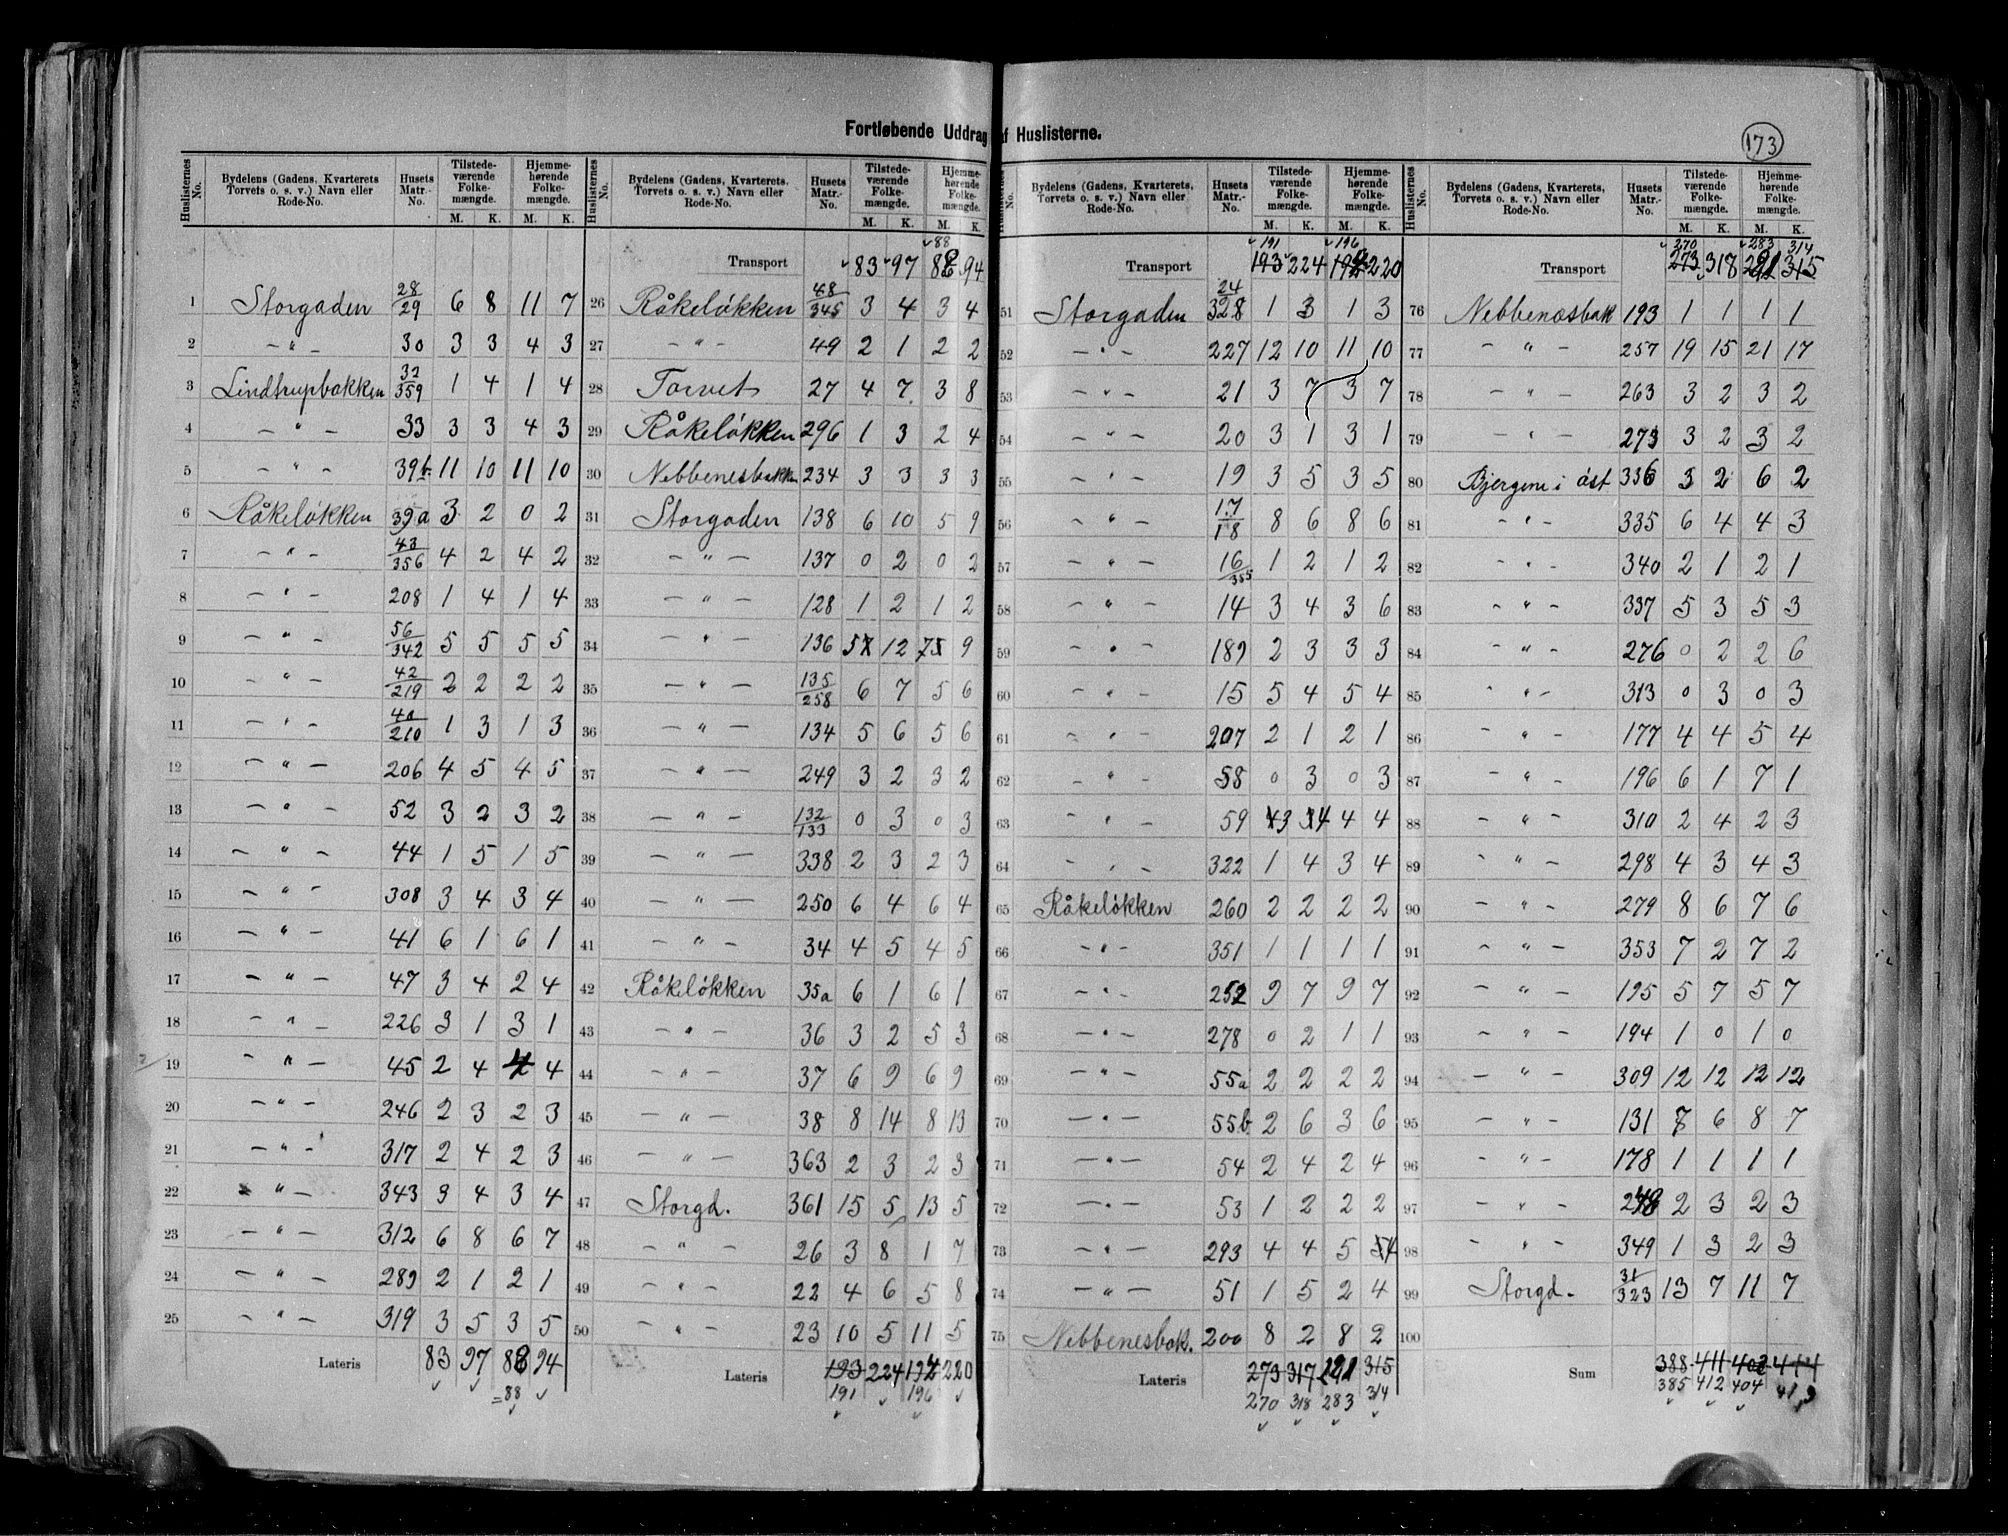 Fortløbende Uddrag af Huslisterne.
173
Huslisternes No. | Bydelens (Gadens, Kvarterets, Torvets o. s. v.) Navn eller Rode-No. | Husets Matr.-No. | Tilstedeværende Folkemængde. M. K. | Hjemmehørende Folkemængde. M. K.
1 Storgaden 28/29 6 8 11 7
2 — " — 30 3 3 4 3
3 Lindtrupbakken 32/359 1 4 1 4
4 — " — 33 3 3 4 3
5 — " — 39b 11 10 11 10
6 Råkeløkken 39a 3 2 0 2
7 — " — 43/356 4 2 4 2
8 — " — 208 1 4 1 4
9 — " — 56/342 5 5 5 5
10 — " — 42/219 2 2 2 2
11 — " — 40/210 1 3 1 3
12 — " — 206 4 5 4 5
13 — " — 52 3 2 3 2
14 — " — 44 1 5 1 5
15 — " — 308 3 4 3 4
16 — " — 41 6 1 6 1
17 — " — 47 3 4 2 4
18 — " — 226 3 1 3 1
19 — " — 45 2 4 4 4
20 — " — 246 2 3 2 3
21 — " — 317 2 4 2 3
22 — " — 343 3 4 3 4
23 — " — 312 6 8 6 7
24 — " — 289 2 1 2 1
25 — " — 319 3 5 3 5
Lateris 83 97 88 94
=88
Huslisternes No. | Bydelens (Gadens, Kvarterets, Torvets o. s. v.) Navn eller Rode-No. | Husets Matr.-No. | Tilstedeværende Folkemængde. M. K. | Hjemmehørende Folkemængde. M. K.
88
Transport 83 97 88 94
26 Råkeløkken 48/345 3 4 3 4
27 — " — 49 2 1 2 2
28 Torvet 27 4 7 3 8
29 Råkeløkken 296 1 3 2 4
30 Nebbenesbakken 234 3 3 3 3
31 Storgaden 138 6 10 5 9
32 — " — 137 0 2 0 2
33 — " — 128 1 2 1 2
34 — " — 136 5 12 7 9
35 — " — 135/258 6 7 5 6
36 — " — 134 5 6 5 6
37 — " — 249 3 2 3 2
38 — " — 132/133 0 3 0 3
39 — " — 338 2 3 2 3
40 — " — 250 6 4 6 4
41 — " — 34 4 5 4 5
42 Råkeløkken 35a 6 1 6 1
43 — " — 36 3 2 5 3
44 — " — 37 6 9 6 9
45 — " — 38 8 14 8 13
46 — " — 363 2 3 2 3
47 Storgd. 361 15 5 13 5
48 — " — 26 3 8 1 7
49 — " — 22 4 6 5 8
50 — " — 23 10 5 11 5
Lateris 193 224 194 220
191 196
Huslisternes No. | Bydelens (Gadens, Kvarterets, Torvets o. s. v.) Navn eller Rode-No. | Husets Matr.-No. | Tilstedeværende Folkemængde. M. K. | Hjemmehørende Folkemængde. M. K.
191 196
Transport 193 224 194 220
51 Storgaden 24/328 1 3 1 3
52 — " — 227 12 10 11 10
53 — " — 21 3 7 3 7
54 — " — 20 3 1 3 1
55 " — 19 3 5 3 5
56 — " — 17/18 8 6 8 6
57 — " — 16/355 1 2 1 2
58 — " — 14 3 4 3 6
59 — " — 189 2 3 3 3
60 — " — 15 5 4 5 4
61 — " — 207 2 1 2 1
62 — " — 58 0 3 0 3
63 — " — 59 3 4 4 4
64 — " — 322 1 4 3 4
65 Råkeløkken 260 2 2 2 2
66 — " — 351 1 1 1 1
67 — " — 252 9 7 9 7
68 — " — 278 0 2 1 1
69 — " — 55a 2 2 2 2
70 — " — 55b 2 6 3 6
71 — " — 54 2 4 2 4
72 — " — 53 1 2 2 2
73 — " — 293 4 4 5 4
74 — " — 51 1 5 2 4
75 Nebbenesbak. 200 8 2 8 2
Lateris 273 317 281 315
270 318 283 314
Huslisternes No. | Bydelens (Gadens, Kvarterets, Torvets o. s. v.) Navn eller Rode-No. | Husets Matr.-No. | Tilstedeværende Folkemængde. M. K. | Hjemmehørende Folkemængde. M. K.
270 283 314
Transport 273 318 281 315
76 Nebbenæsbak 193 1 1 1 1
77 — " — 257 19 15 21 17
78 — " — 263 3 2 3 2
79 — " — 273 3 2 3 2
80 Bjergene i øst 336 3 2 6 2
81 — " — 335 6 4 4 3
82 — " — 340 2 1 2 1
83 — " — 337 5 3 5 3
84 — " — 276 0 2 2 6
85 — " — 313 0 3 0 3
86 — " — 177 4 4 5 4
87 — " — 196 6 1 7 1
88 — " — 310 2 4 2 3
89 — " — 298 4 3 4 3
90 — " — 279 8 6 7 6
91 — " — 353 7 2 7 2
92 — " — 195 5 7 5 7
93 — " — 194 1 0 1 0
94 — " — 309 12 12 12 12
95 — " — 131 7 6 8 7
96 — " — 178 1 1 1 1
97 — " — 248 2 3 2 3
98 — " — 349 1 3 2 3
99 Storgd. 31/323 13 7 11 7
100
Sum 388 411 402 414
385 412 404 413